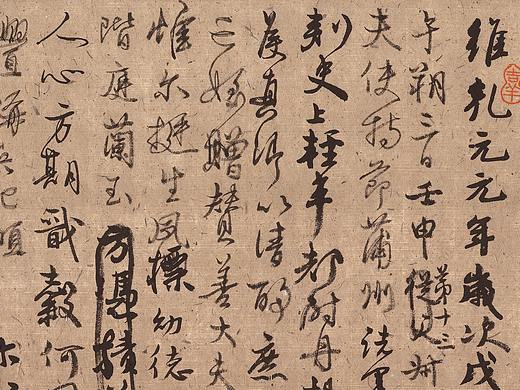 維乾元元年歲次戊
午朔三日壬申第十三從父叔
夫使持節蒲州諸軍
刺史上輕車都尉丹楊
侯真卿以清酌庶
亡姪贈贊善大夫
惟爾挺生夙標幼德
階庭蘭玉方憑積
人心方期戩穀何
釁稱兵犯順尔